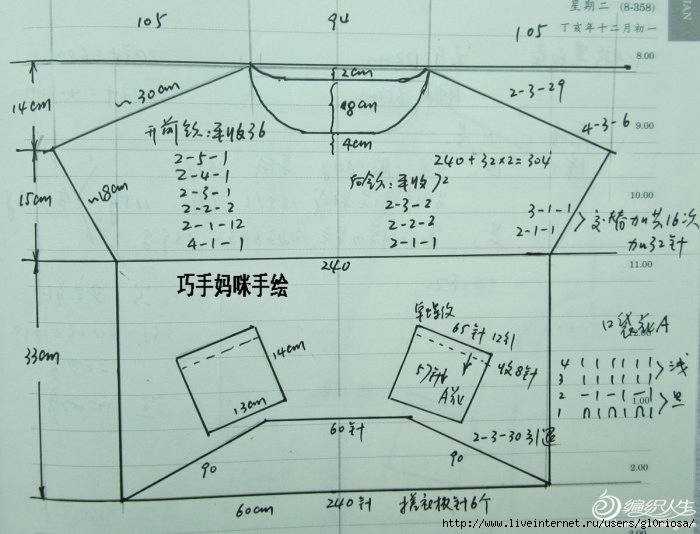 星期二 (8-358)
丁亥年十二月初一
105
94
105
8.00
2cm
14cm
~30cm
18cm
2-3-29
4cm
9.00
4-3-6
开前领:平收36
2-5-1
2-4-1
2-3-1
2-2-2
2-1-12
4-1-1
240+32×2=304
后领:平收72
2-3-2
2-2-2
2-1-1
15cm
~18cm
10.00
3-1-1
2-1-1
交替加共16次
加32针
11.00
240
巧手妈咪手绘
33cm
14cm
13cm
65针
12行
收8针
57针
A花
口袋花A
4
3
2
1
1.00
60针
2-3-30引退
90
90
2.00
60cm
240针
编织人生
http://www.liveinternet.ru/users/gloriosa/
3.00